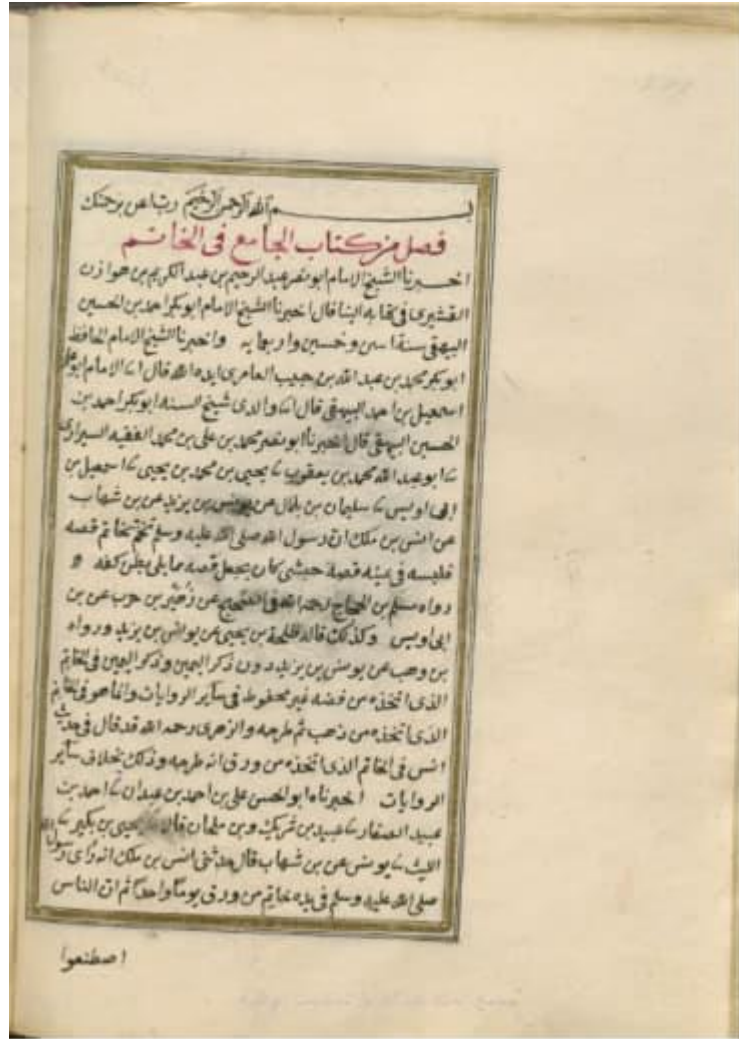 بسم الله الرحمن الرحيم ربنا عن برحمتك
فصل من كتاب الجامع في الخاتم
اخبرنا الشيخ الامام ابو نصر عبد الرحيم بن عبد الكريم بن هوازن
القشيرى في كتابه الينا قال اخبرنا الشيخ الامام ابو بكر احمد بن الحسين
البيهقى سنة اسى وخمسين واربعمايه واخبرنا الشيخ الامام الحافظ
ابو بكر محمد بن عبد الله بن حبيب العامرى ايده الله قال انا الامام ابو على
اسمعيل بن احمد البيهقى قال انا والدى شيخ السنه ابو بكر احمد بن
الحسين البيهقى قال اخبرنا ابو نصر محمد بن على بن محمد الفقيه السيرازى
نا ابو عبد الله محمد بن يعقوب نا يحيى بن محمد بن يحيى نا اسمعيل بن
ابى اويس نا سليمان بن بلال عن يونس بن يزيد عن بن شهاب
عن انس بن ملك ان رسول الله صلى الله عليه وسلم تختم بخاتم فصه
فلبسه في يمينه فصه حبشى كان يجعل فصه مما يلى بطن كفه
رواه مسلم بن الحجاج رحمه الله في الصحيح عن زهير بن حرب عن بن
ابى اويس وكذلك قاله طلحة بن يحيى عن يونس بن يزيد ورواه
بن وهب عن يونس بن يزيد دون ذكر اليمين وذكر اليمين في الخاتم
الذى اتخذه من فضه غير محفوظ في سآير الروايات وانما هو في الخاتم
الذى اتخذه من ذهب ثم طرحه والزهرى رحمه الله قد قال في حديث
انس في الخاتم الذى اتخذه من ورق انه طرحه وذلك بخلاف سآير
الروايات اخبرناه ابو الحسن على بن احمد بن عبدان نا احمد بن
عبيد الصفار نا عبيد بن شريك وبن ملحان قالا نا يحيى بن بكير نا
الليث نا يونس عن بن شهاب قال حدثنى انس بن ملك انه رأى رسول الله
صلى الله عليه وسلم في يده خاتم من ورق يومًا واحدًا ثم ان الناس
اصطنعوا